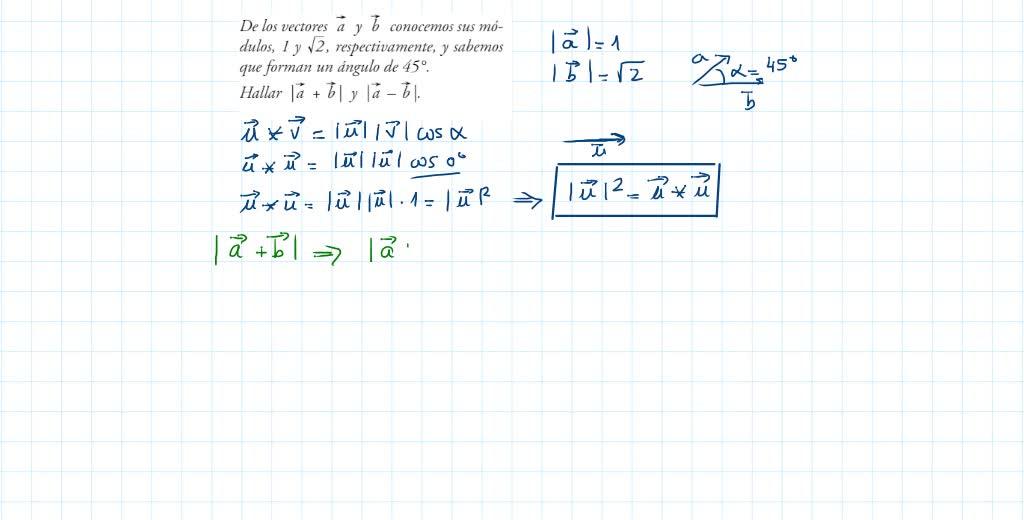 De los vectores a⃗ y b⃗ conocemos sus mó-
dulos, 1 y √2, respectivamente, y sabemos
que forman un ángulo de 45°.
Hallar |a⃗ + b⃗| y |a⃗ − b⃗|.
|a⃗| = 1
|b⃗| = √2
a α = 45°
b
u⃗ * v⃗ = |u⃗| |v⃗| cos α
u⃗ * u⃗ = |u⃗| |u⃗| cos 0°
u⃗
u⃗ * u⃗ = |u⃗| |u⃗| · 1 = |u⃗|² ⇒ |u⃗|² = u⃗ * u⃗
|a⃗ + b⃗| ⇒ |a⃗